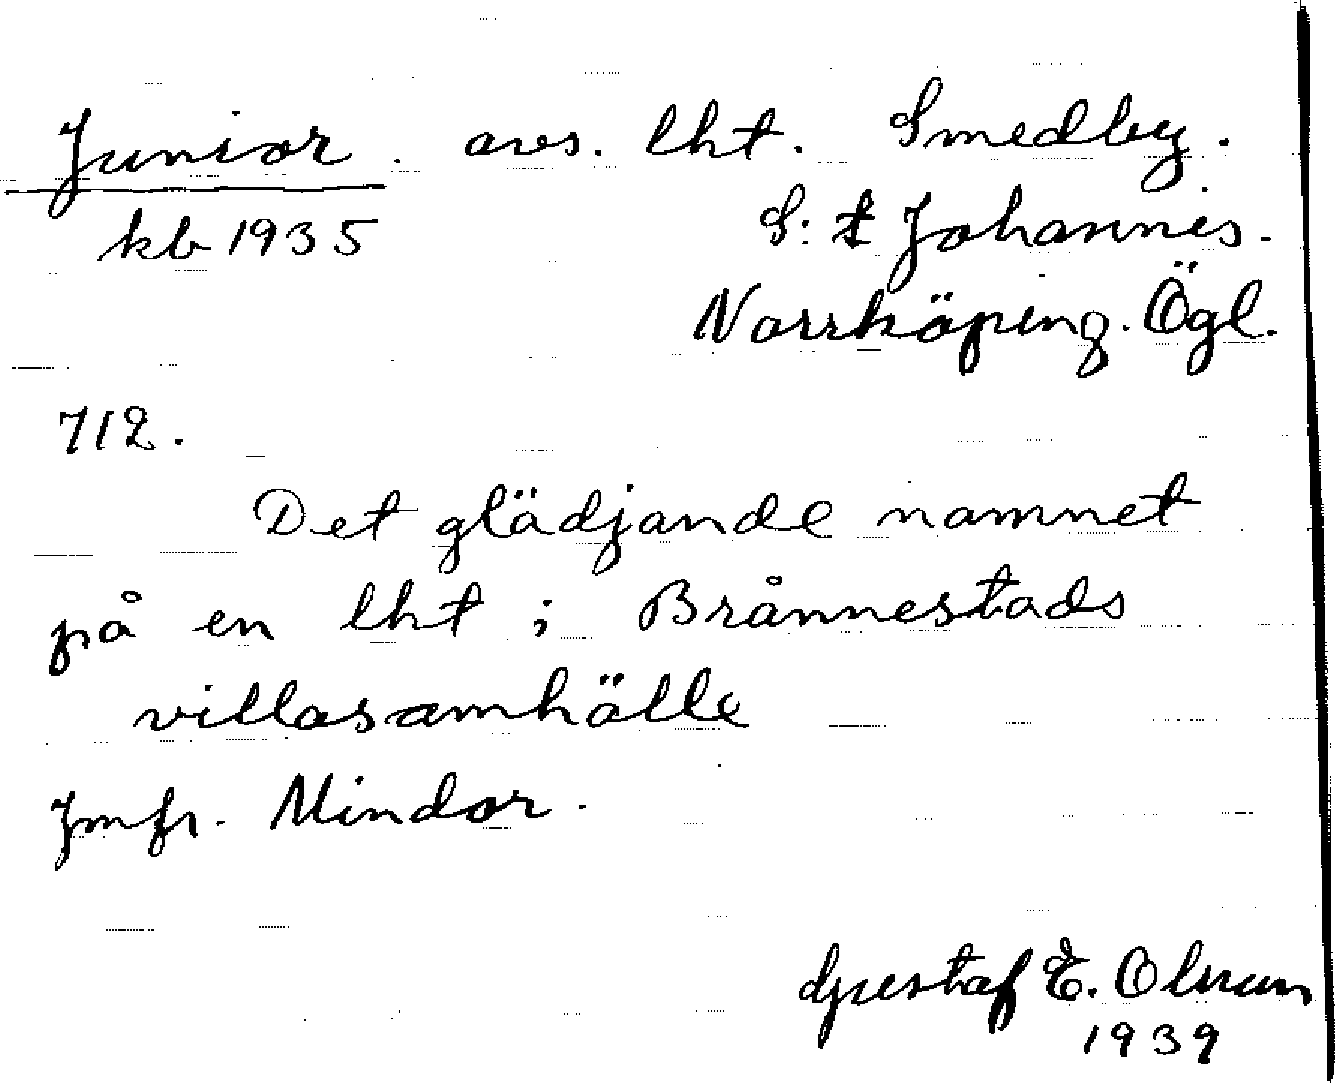 Junior. avs. lht. Smedby.
kb 1935 S:t Johannes.
Norrköping. Ögl.
712.
Det glädjande namnet
på en lht i Brånnestads
villasamhälle
Jmfr. Mindor.
Gustaf E. Olsson
1939